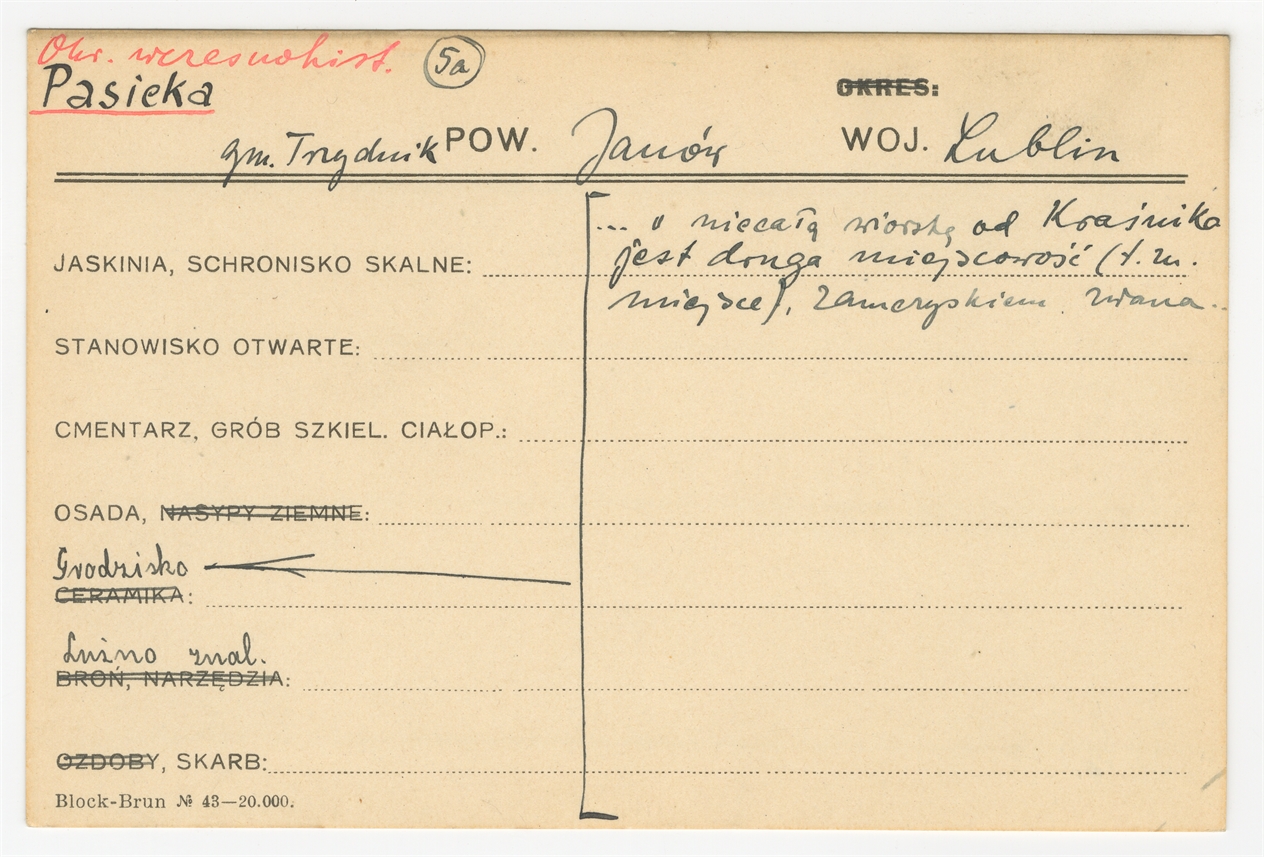 Okr. wczesnohist. 5a
Pasieka
OKRES:
gm. Trzydnik POW. Janów WOJ. Lublin
... o niecałą wiorstę od Kraśnika
JASKINIA, SCHRONISKO SKALNE: jest druga miejscowość (t. zn.
miejsce), Zamczyskiem zwana..
STANOWISKO OTWARTE:
CMENTARZ, GRÓB SZKIEL. CIAŁOP.:
OSADA, NASYPY ZIEMNE:
Grodzisko
CERAMIKA:
Luźno znal.
BROŃ, NARZĘDZIA:
OZDOBY, SKARB:
Block-Brun № 43—20.000.